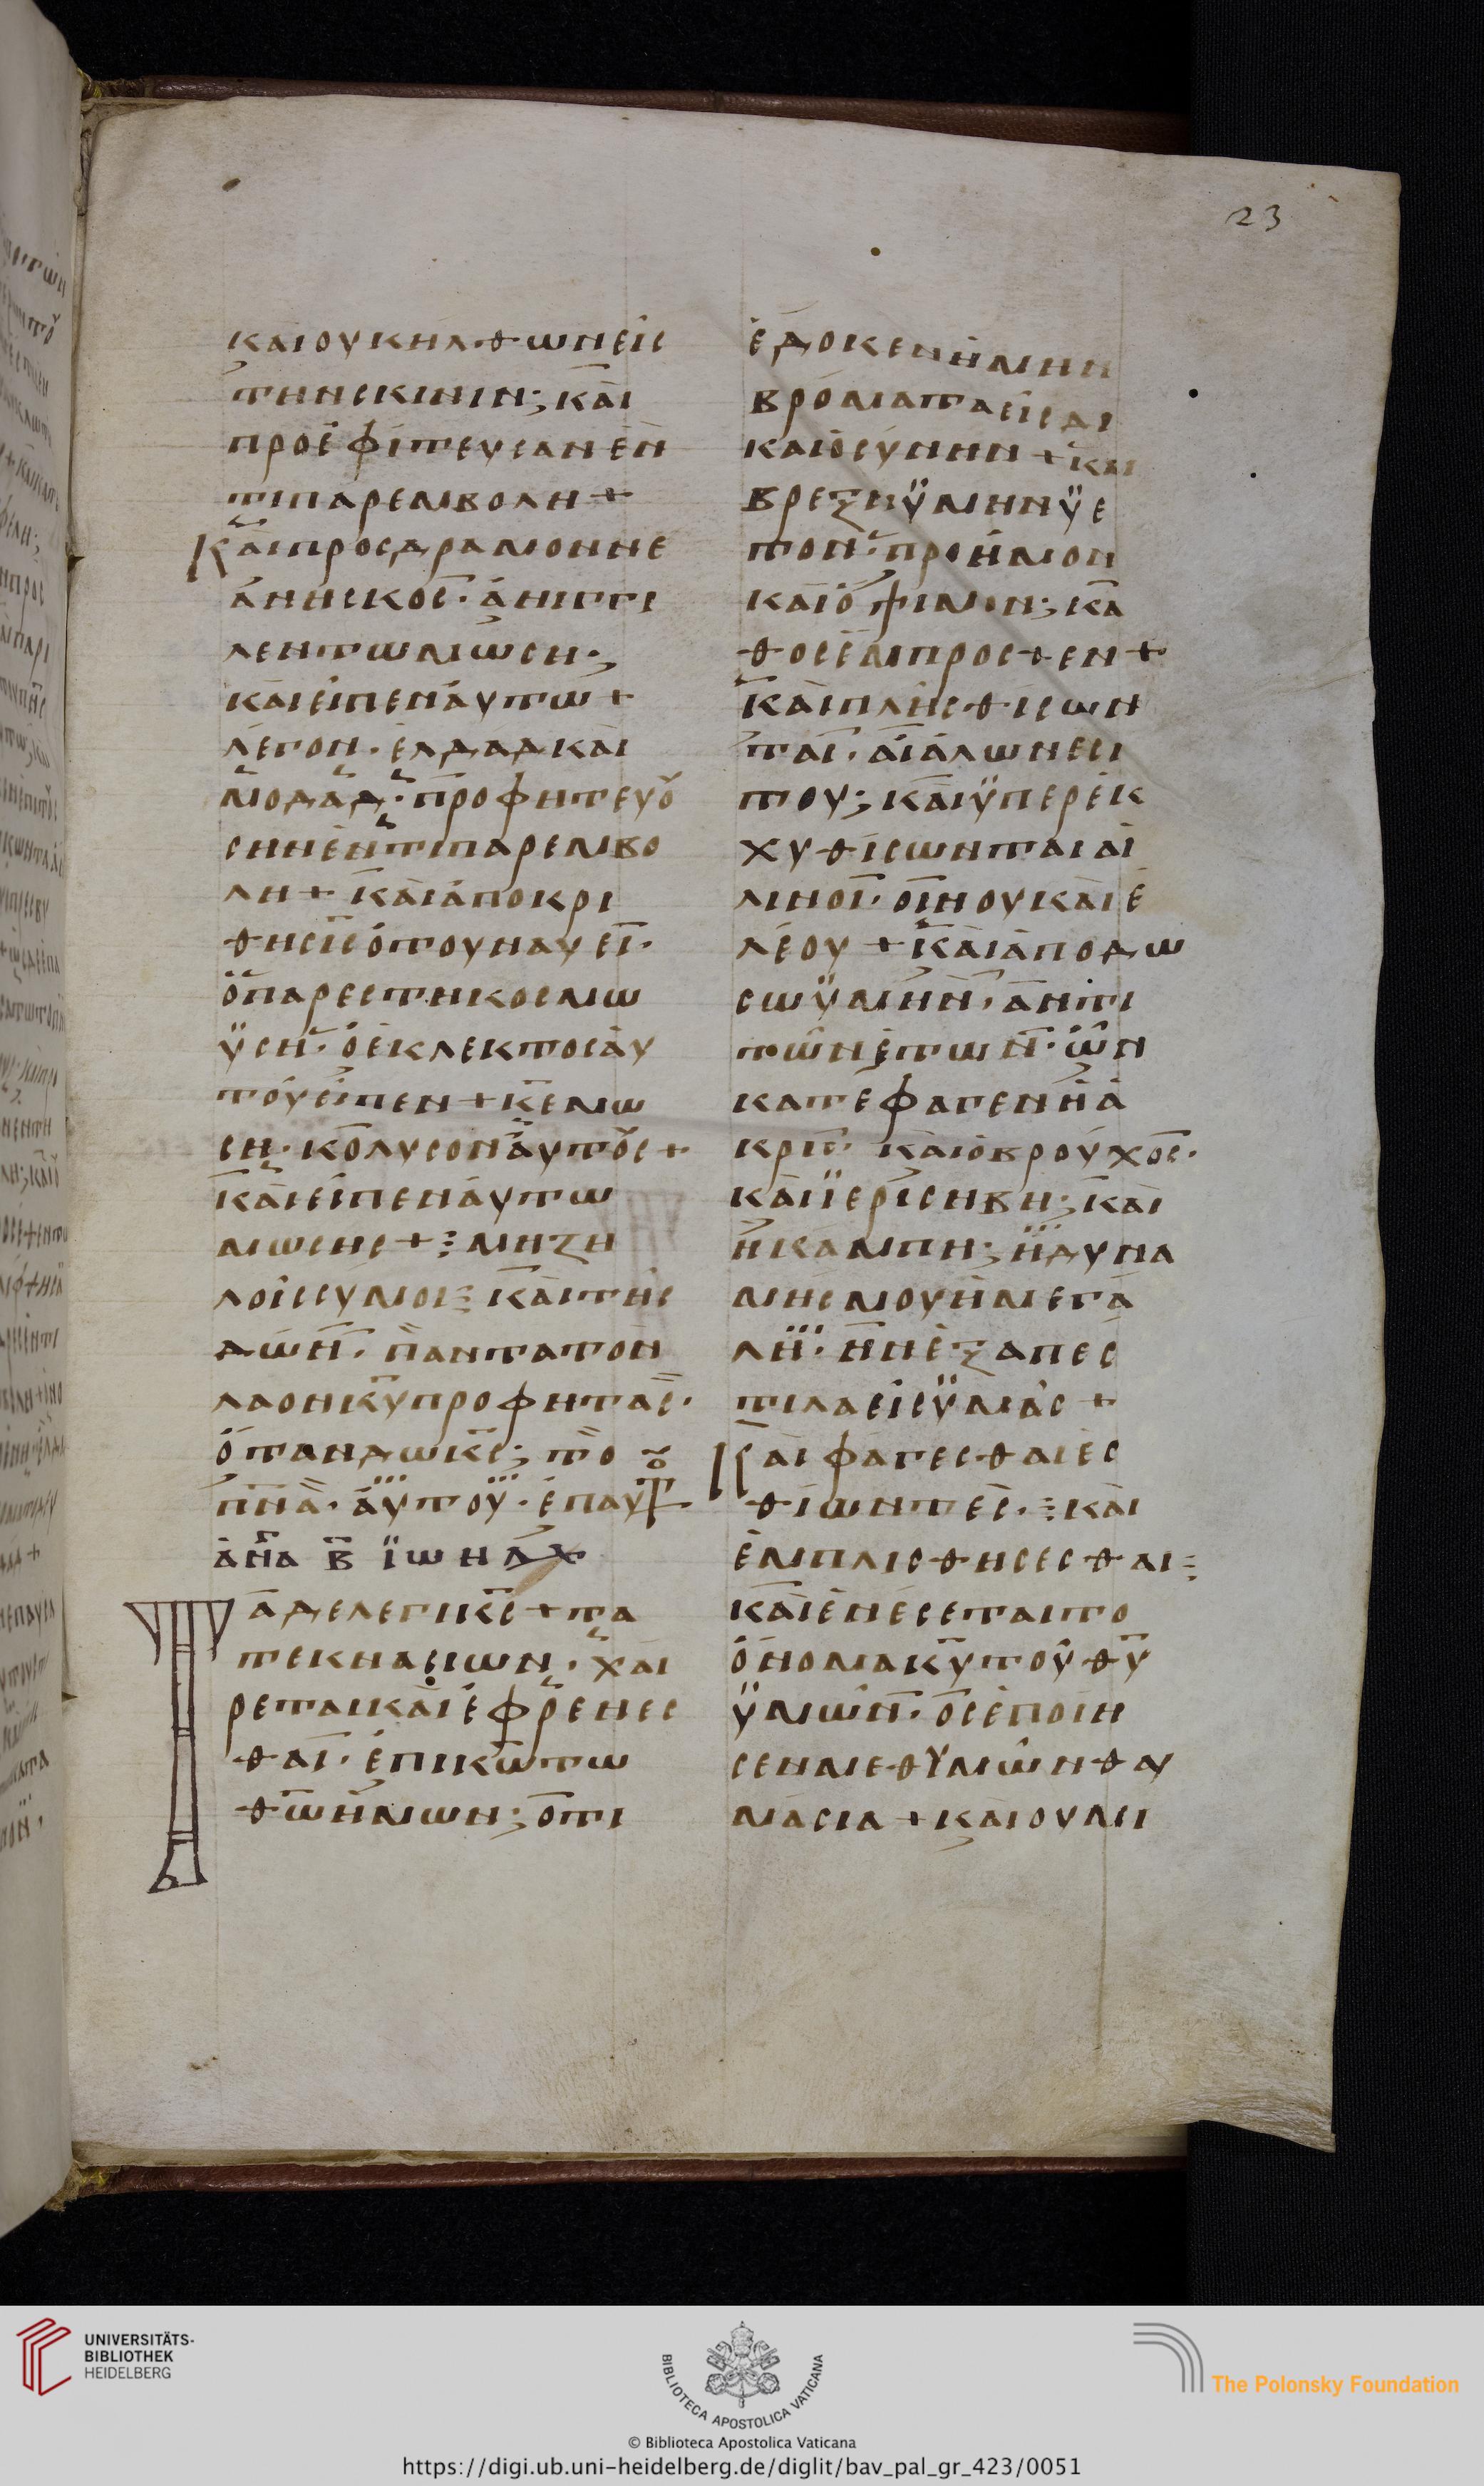 23
καιουκηλθωνεισ
τηνσκινιν; και
προεφιτευσανεν
τιπαρεμβολη+
Καιπροσδραμοννε
αννσκοσ· ανιγγι
λεντωμωσεη·;
καιειπεναυτω+
λεγον· ελδαδκαι
μοδαδ· προφητευȣ
σηνεντιπαρεμβο
λη+ καιαποκρι
θησεισοτουναυει·
οπαρεστηκοσμω
ϋσεη· οεκλεκτοσαυ
τουειπεν+κεμω
ση· κολυσοναυτȣσ+
καιειπεναυτω
μωσησ+ μηζη
λοισσυμοι καιτησ
δωη· παντατον
λαονκυπροφητασ·
οτανδωκσ; το
πνα· αυτου· επαυτ
ανα β ϊωηλ
Παδελεγικε+τα
τεκνασιωη· χαι
ρεταικαιεφρενεσ
θαι· επικωτω
θωημων; οτι
εδοκενημιν
βροματαεισδι
καιοσυνην+και
βρεξηϋμινϋε
τον· προημον
καιοψιμον; κα
θοσεμπροσθεν+
καιπλησθισων
ται· αιαλωνεσι
του; καιϋπερεκ
χυθισωνταιαι
ληνοι· οινουκαιε
λεου+καιαποδω
σωϋμιν· αντι
τωνετων· ων
κατεφαγενηα
κρισ καιοβρουχοσ·
καιϊερισηβη; και
ηκαμπη; ηδυνα
μησμουημεγα
λη· ηνεξαπεσ
τιλαεισϋμασ+
Καιφαγεσθαιεσ
θιωντεσ· και
εμπλισθησεσθαι
καιενεσεταιτο
ονομακυτουθυ
ϋμων· οσεποιη
σενμεθϋμωνθαυ
μασια+καιουμι
UNIVERSITÄTS-
BIBLIOTHEK
HEIDELBERG
BIBLIOTECA APOSTOLICA VATICANA
The Polonsky Foundation
© Biblioteca Apostolica Vaticana
https://digi.ub.uni-heidelberg.de/diglit/bav_pal_gr_423/0051